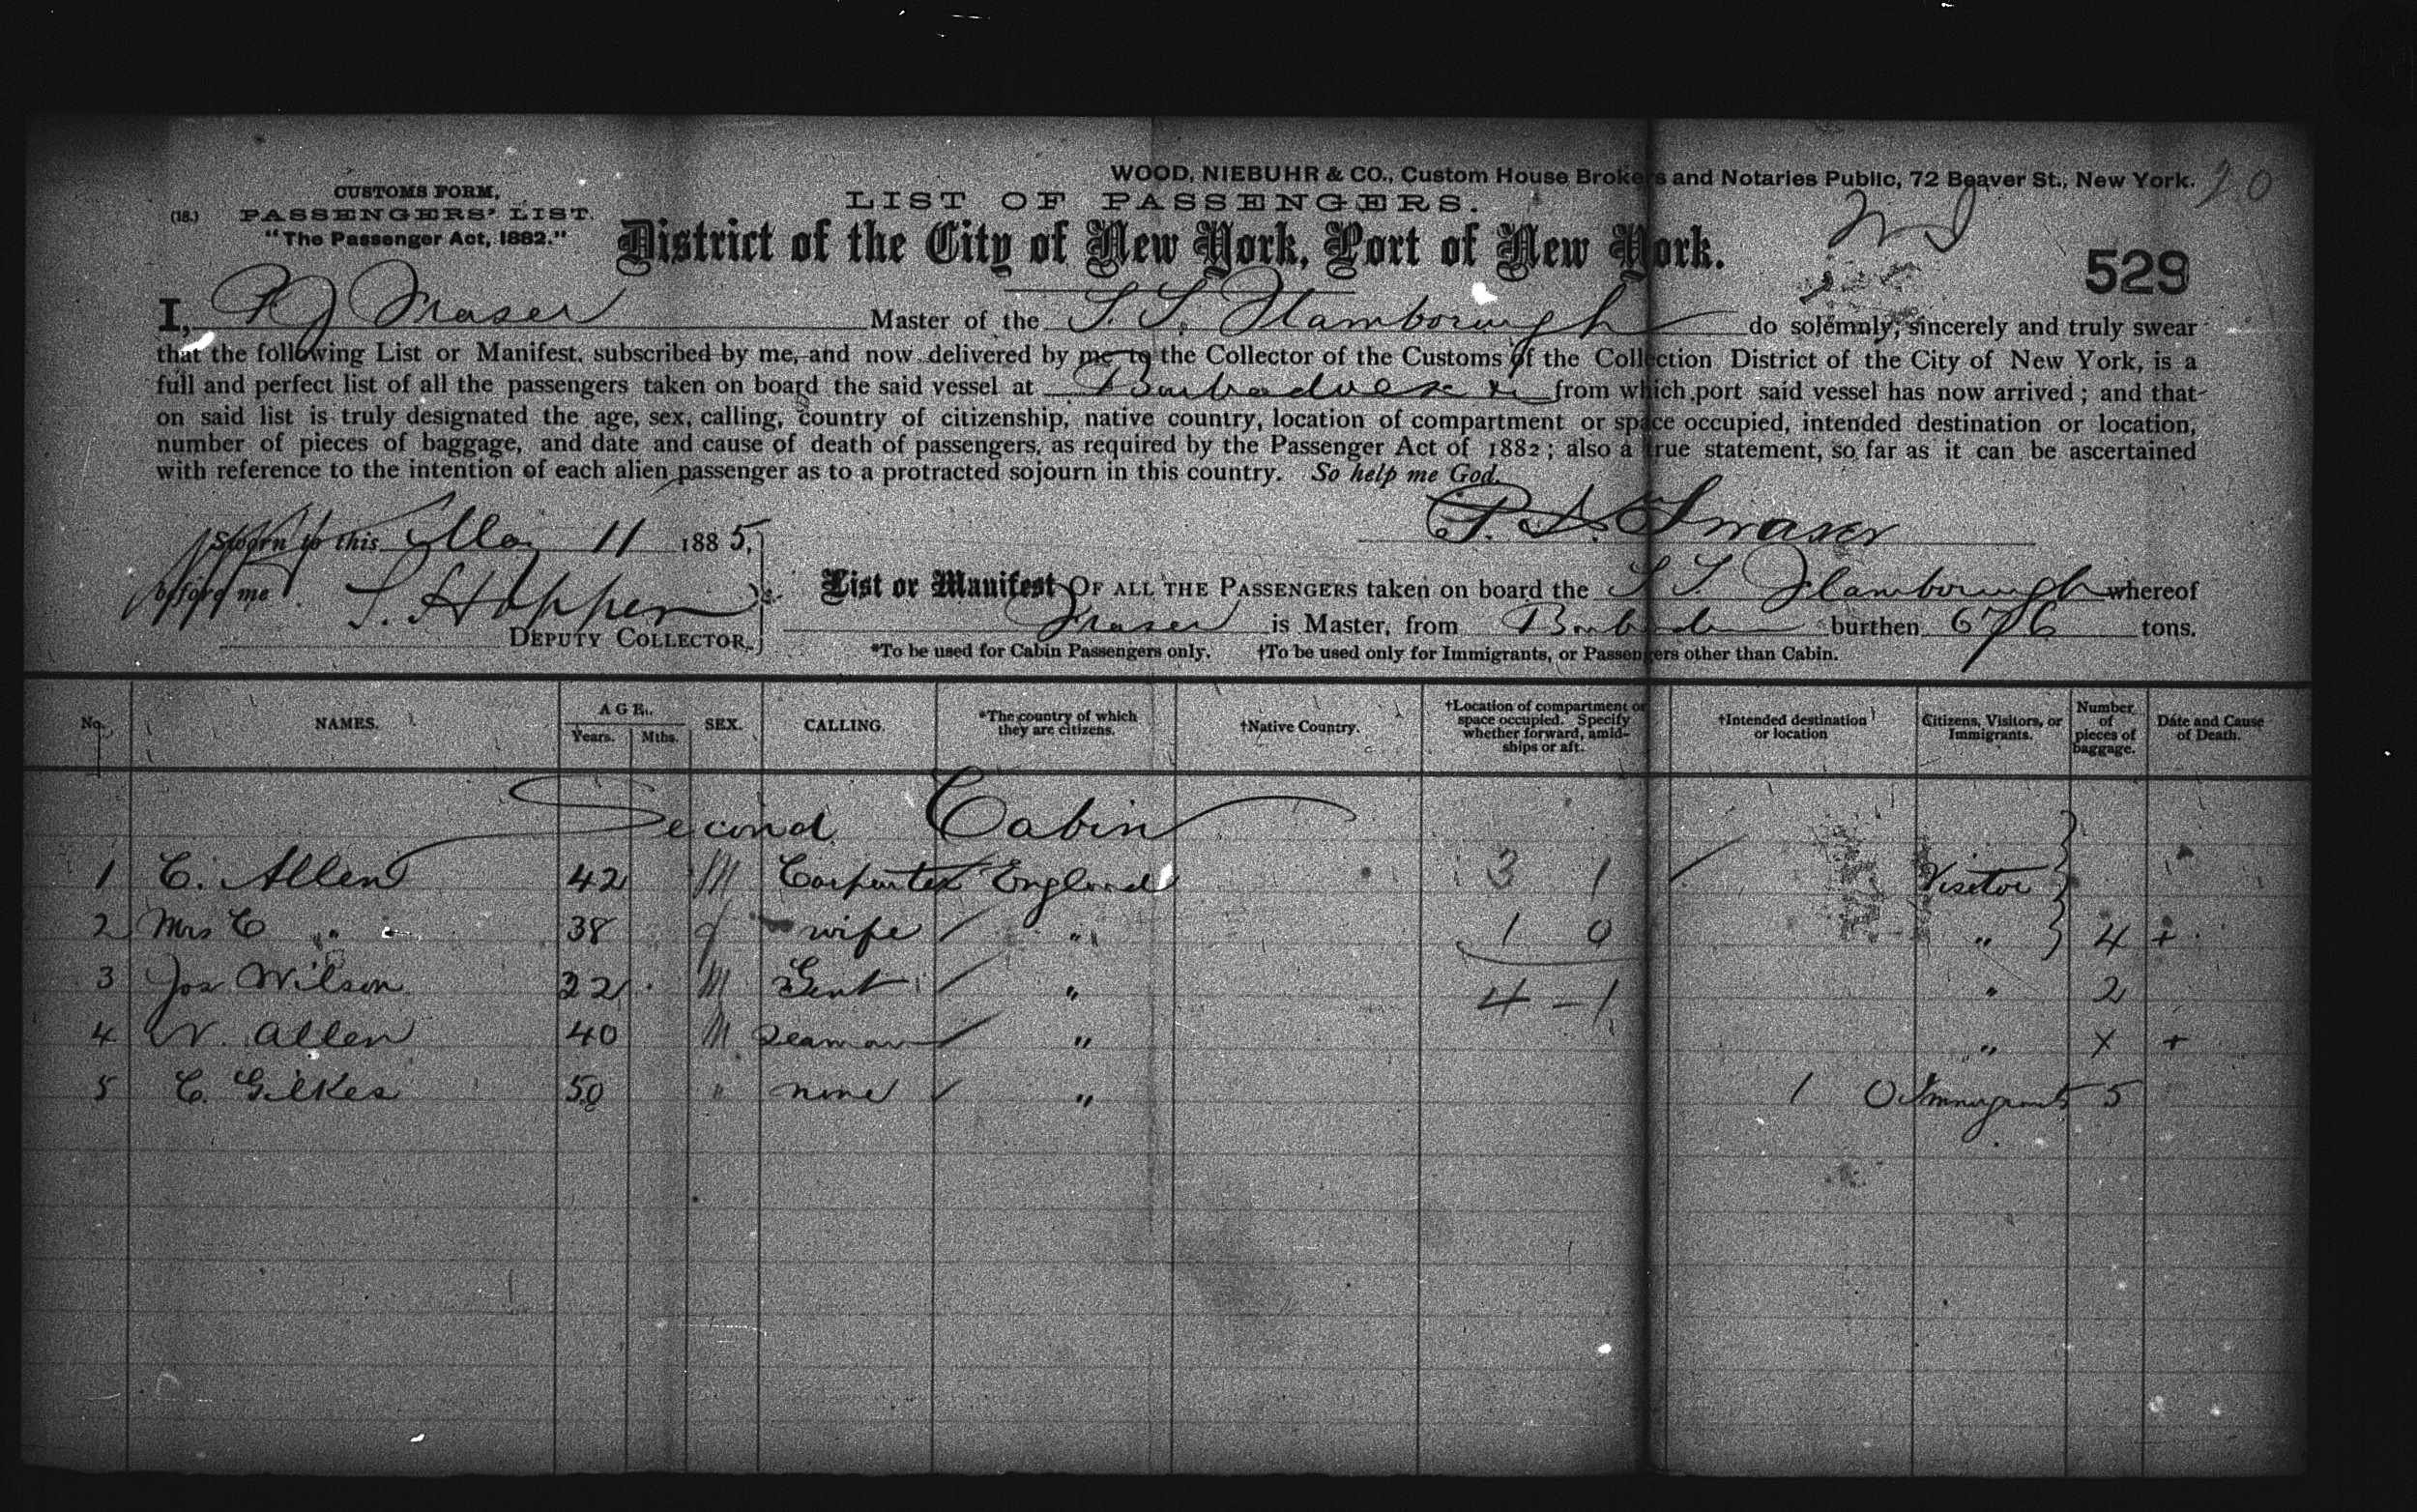 WOOD, NIEBUHR & CO., Custom House Brokers and Notaries Public, 72 Beaver St., New York. 20
CUSTOMS FORM,
(18.) PASSENGERS' LIST.
"The Passenger Act, 1882."
LIST OF PASSENGERS.
District of the City of New York, Port of New York.
529
I, P J Fraser Master of the S. S. Flamborough do solemnly, sincerely and truly swear
that the following List or Manifest, subscribed by me, and now delivered by me to the Collector of the Customs of the Collection District of the City of New York, is a
full and perfect list of all the passengers taken on board the said vessel at Barbadoes from which port said vessel has now arrived; and that
on said list is truly designated the age, sex, calling, country of citizenship, native country, location of compartment or space occupied, intended destination or location,
number of pieces of baggage, and date and cause of death of passengers, as required by the Passenger Act of 1882; also a true statement, so far as it can be ascertained
with reference to the intention of each alien passenger as to a protracted sojourn in this country. So help me God.
P. J. Fraser
Sworn to this May 11 1885,
before me S. Hopper
DEPUTY COLLECTOR.
List or Manifest OF ALL THE PASSENGERS taken on board the S S. Flamborough whereof
Fraser is Master, from Barbadoes burthen 676 tons.
*To be used for Cabin Passengers only. †To be used only for Immigrants, or Passengers other than Cabin.
No. NAMES. AGE. Years. Mths. SEX. CALLING. *The country of which they are citizens. †Native Country. †Location of compartment or space occupied. Specify whether forward, amidships or aft. †Intended destination or location Citizens, Visitors, or Immigrants. Number of pieces of baggage. Date and Cause of Death.
Second Cabin
1 C. Allen 42 M Carpenter England 3 1 Visitor
2 Mrs C " 38 f wife " 1 0 " 4 +
3 Jos Wilson 22 M Gent " 4 - 1 " 2
4 W. Allen 40 M Seaman " " X +
5 C. Gilkes 50 " none " 1 0 Immigrant 5